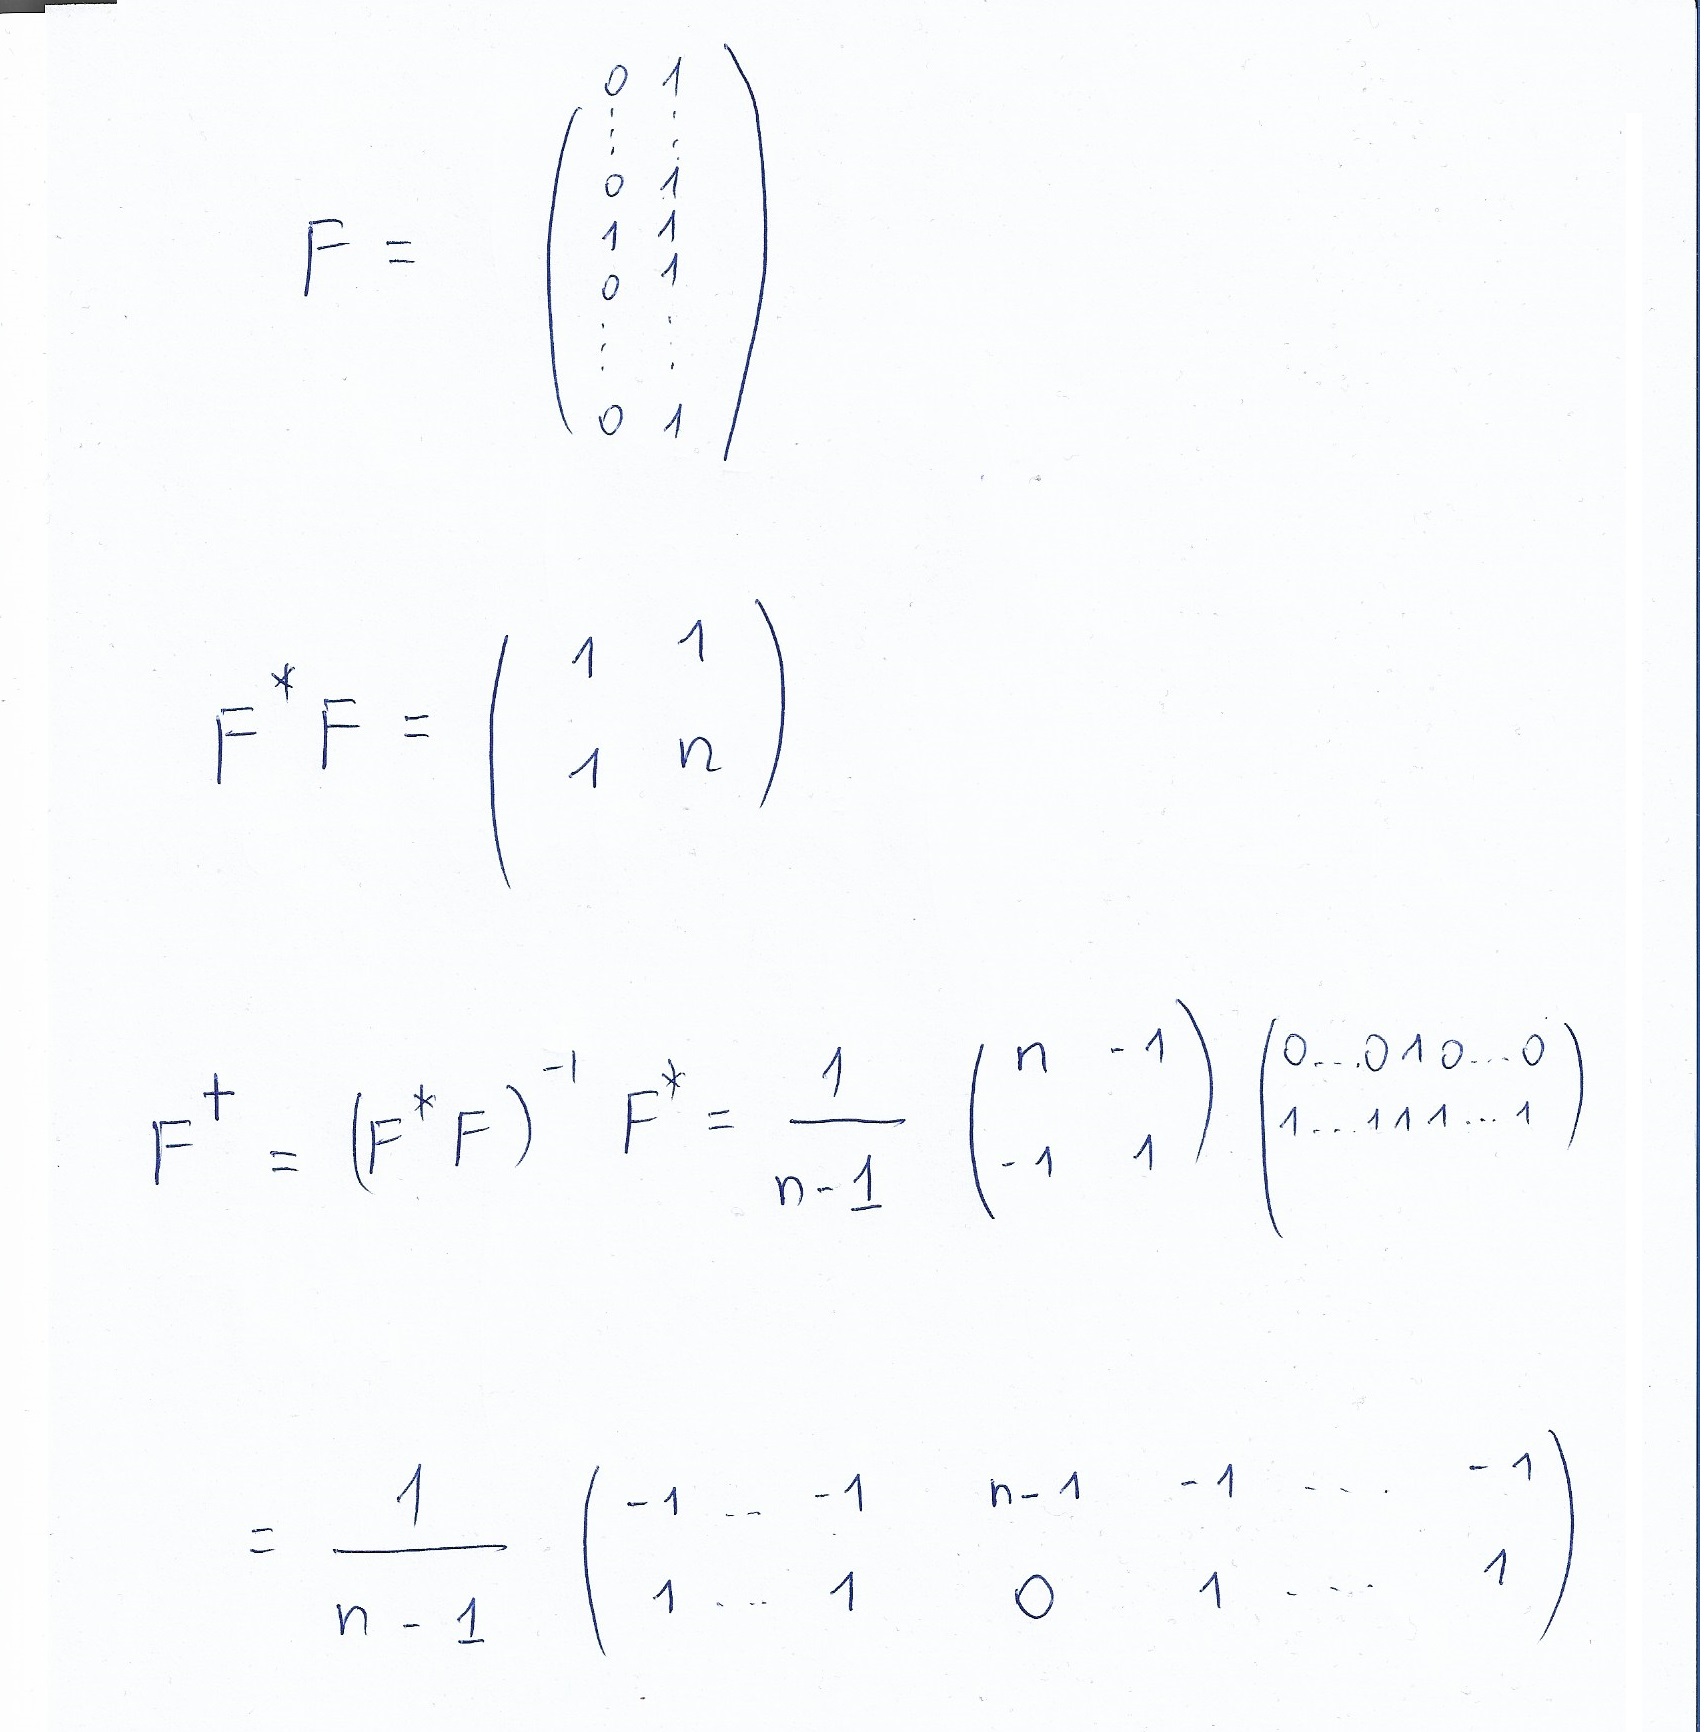 0 1
⋮ ⋮
0 1
1 1
F = 0 1
⋮ ⋮
0 1
1 1
F* F =
1 n
F⁺ = (F* F)⁻¹ F* = 1/(n-1) ( n -1 ; -1 1 ) ( 0...0 1 0...0 ; 1...1 1 1...1 )
= 1/(n-1) ( -1 .. -1 n-1 -1 .... -1 ; 1 ... 1 0 1 .... 1 )